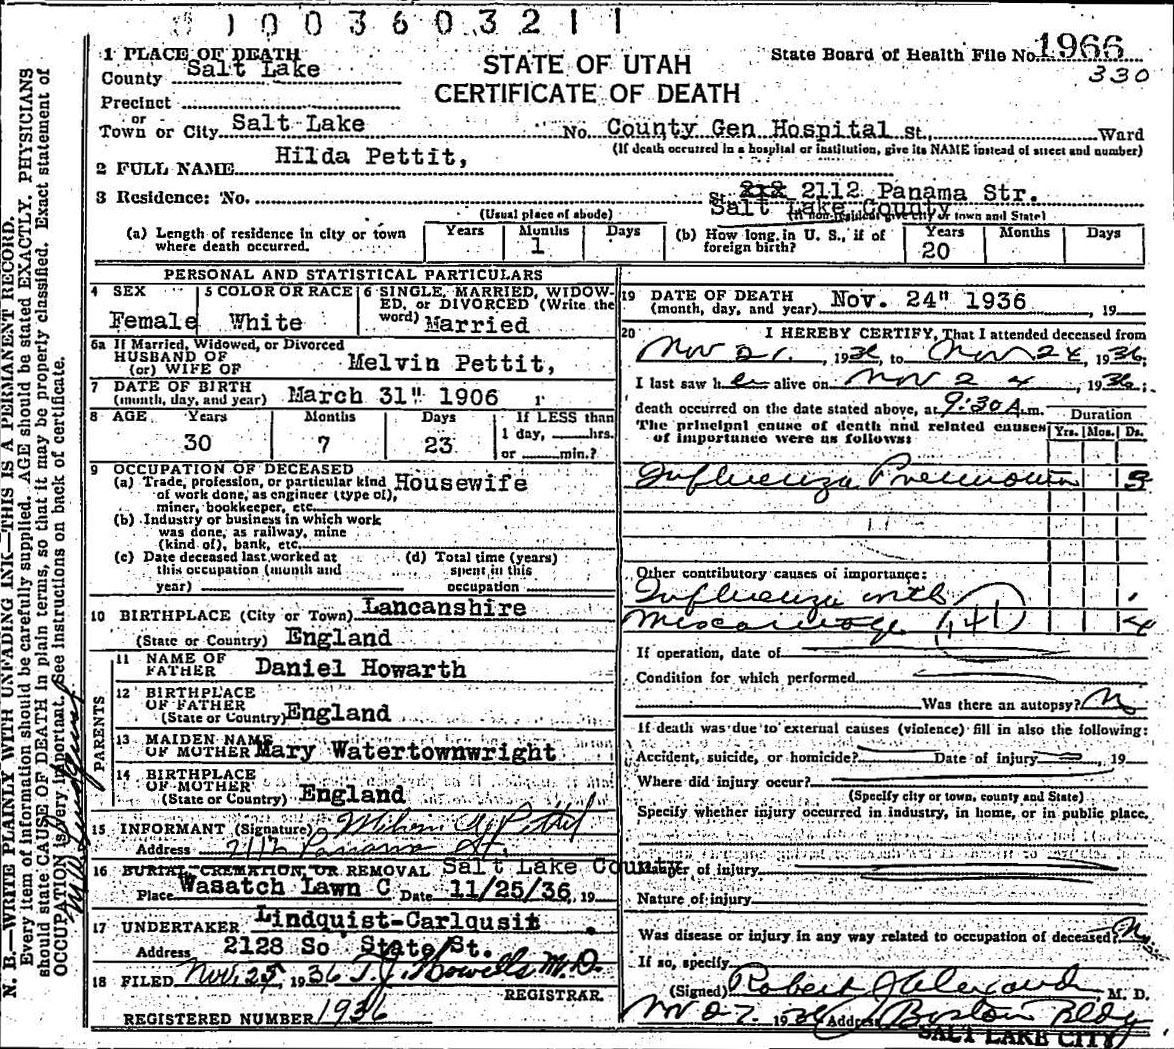 1003603211
STATE OF UTAH
CERTIFICATE OF DEATH
State Board of Health File No. 1966
330
1 PLACE OF DEATH
County Salt Lake
Precinct
or
Town or City Salt Lake No. County Gen Hospital St., Ward
(If death occurred in a hospital or institution, give its NAME instead of street and number)
2 FULL NAME Hilda Pettit,
3 Residence: No. St. 212 2112 Panama Str.
Salt Lake County
(Usual place of abode) (If non-resident give city or town and State)
(a) Length of residence in city or town where death occurred. Years Months 1 Days
(b) How long in U. S., if of foreign birth? Years 20 Months Days
PERSONAL AND STATISTICAL PARTICULARS
4 SEX Female
5 COLOR OR RACE White
6 SINGLE, MARRIED, WIDOWED, or DIVORCED (Write the word) Married
6a If Married, Widowed, or Divorced
HUSBAND OF
(or) WIFE OF Melvin Pettit,
7 DATE OF BIRTH
(month, day, and year) March 31" 1906 1
8 AGE Years Months Days If LESS than
30 7 23 1 day, hrs.
or min.?
9 OCCUPATION OF DECEASED
(a) Trade, profession, or particular kind Housewife
of work done, as engineer (type of),
miner, bookkeeper, etc.
(b) Industry or business in which work
was done, as railway, mine
(kind of), bank, etc.
(c) Date deceased last worked at this occupation (month and year)
(d) Total time (years) spent in this occupation
10 BIRTHPLACE (City or Town) Lancanshire
(State or Country) England
PARENTS
11 NAME OF
FATHER Daniel Howarth
12 BIRTHPLACE
OF FATHER
(State or Country) England
13 MAIDEN NAME
OF MOTHER Mary Watertownwright
14 BIRTHPLACE
OF MOTHER
(State or Country) England
15 INFORMANT (Signature)
Address 2112 Panama St.
16 BURIAL, CREMATION, OR REMOVAL Salt Lake County
Place Wasatch Lawn C Date 11/25/36, 19
17 UNDERTAKER Lindquist-Carlqusit
Address 2128 So State St.
18 FILED Nov. 25, 1936 T. J. Howells M.D.
REGISTRAR.
REGISTERED NUMBER 1936
19 DATE OF DEATH
(month, day, and year) Nov. 24" 1936, 19
20 I HEREBY CERTIFY, That I attended deceased from
Nov 21, 1936, to Nov 24, 1936;
I last saw her alive on Nov 24, 1936;
death occurred on the date stated above, at 9:30 A.m.
The principal cause of death and related causes
of importance were as follows:
Duration
Yrs. Mos. Ds.
Influenza Pneumonia 3
Other contributory causes of importance:
Influenza with
Miscarriage 141 4
If operation, date of
Condition for which performed
Was there an autopsy? N
If death was due to external causes (violence) fill in also the following:
Accident, suicide, or homicide? Date of injury , 19
Where did injury occur?
(Specify city or town, county and State)
Specify whether injury occurred in industry, in home, or in public place.
Manner of injury
Nature of injury
Was disease or injury in any way related to occupation of deceased? N
If so, specify
(Signed) Robert J Alexander, M. D.
1936 Address Boston Bldg
SALT LAKE CITY
N. B.—WRITE PLAINLY WITH UNFADING INK—THIS IS A PERMANENT RECORD.
Every item of information should be carefully supplied. AGE should be stated EXACTLY. PHYSICIANS
should state CAUSE OF DEATH in plain terms, so that it may be properly classified. Exact statement of
OCCUPATION is very important. See instructions on back of certificate.